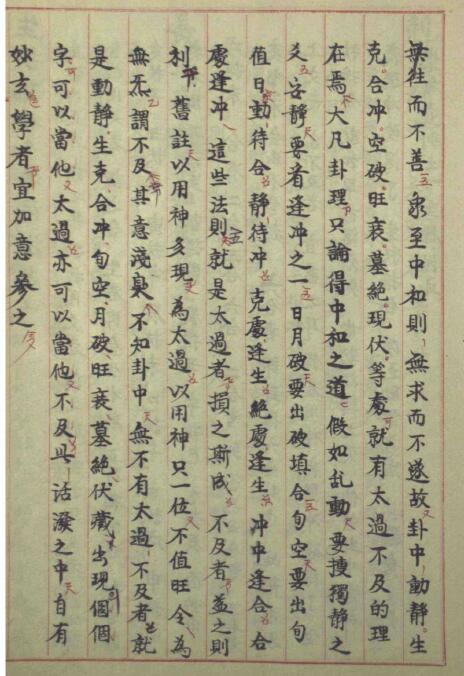 無往而不善象至中和則無求而不遂故卦中動靜生
克合冲空破旺衰墓絕現伏等處就有太過不及的理
在焉大凡卦理只論得中和之道假如乱動要搜獨靜之
爻安靜要看逢冲之一日月破要出破填合旬空要出旬
值日動待合靜待冲克處逢生絕處逢生冲中逢合合
處逢冲這些法則就是太過者損之斯成不及者益之則
利舊註以用神多現為太過以用神只一位不值旺令為
無炁謂不及其意淺臭不知卦中無不有太過不及者就
是動靜生克合冲旬空月破旺衰墓絕伏藏出現個個
字可以當他太過亦可以當他不及此活潑之中自有
妙玄學者宜加意參之